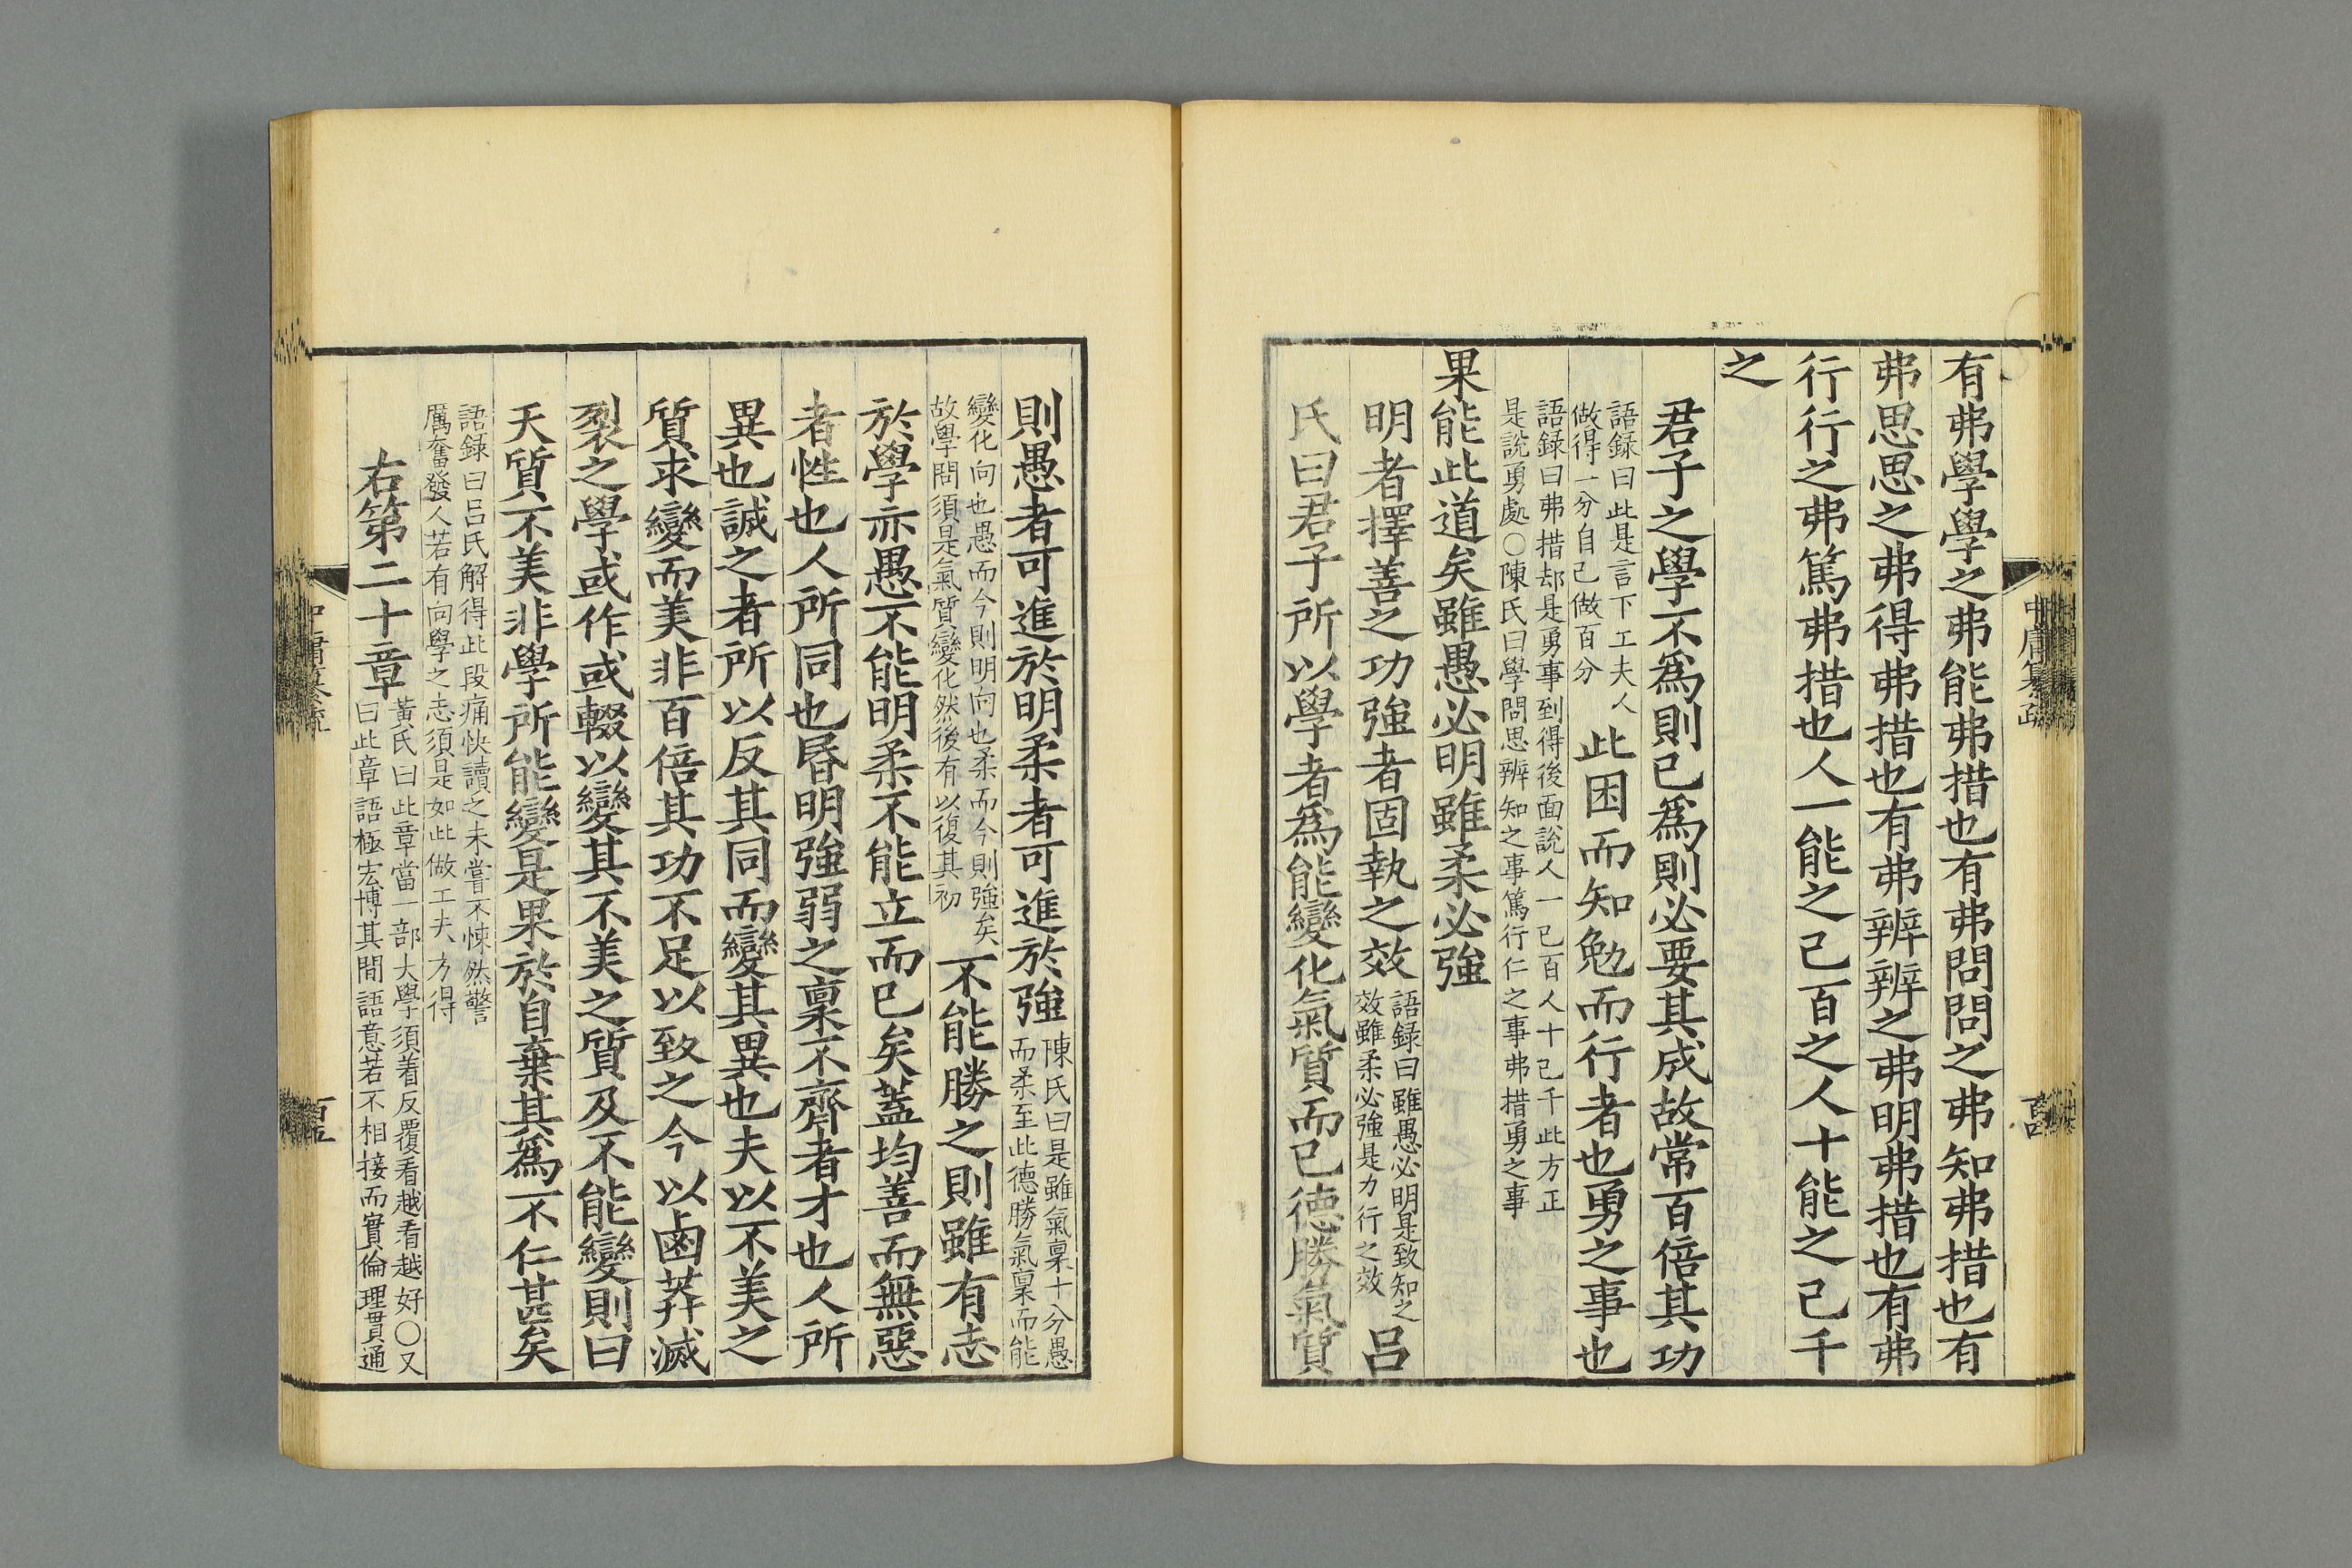 有弗學學之弗能弗措也有弗問問之弗知弗措也有
弗思思之弗得弗措也有弗辨辨之弗明弗措也有弗
行行之弗篤弗措也人一能之己百之人十能之己千
之
君子之學不爲則已爲則必要其成故常百倍其功
語録曰此是言下工夫人
做得一分自己做百分
此困而知勉而行者也勇之事也
語録曰弗措却是勇事到得後面說人一已百人十已千此方正
是說勇處〇陳氏曰學問思辨知之事篤行仁之事弗措勇之事
果能此道矣雖愚必明雖柔必強
明者擇善之功強者固執之效
語録曰雖愚必明是致知之
效雖柔必強是力行之效
呂
氏曰君子所以學者爲能變化氣質而已德勝氣質
則愚者可進於明柔者可進於強
陳氏曰是雖氣稟十分愚
而柔至此德勝氣稟而能
變化向也愚而今則明向也柔而今則強矣
故學問須是氣質變化然後有以復其初
不能勝之則雖有志
於學亦愚不能明柔不能立而已矣蓋均善而無惡
者性也人所同也昬明強弱之稟不齊者才也人所
異也誠之者所以反其同而變其異也夫以不美之
質求變而美非百倍其功不足以致之今以鹵莽滅
裂之學或作或輟以變其不美之質及不能變則曰
天質不美非學所能變是果於自棄其爲不仁甚矣
語録曰呂氏解得此段痛快讀之未嘗不悚然警
厲奮發人若有向學之志須是如此做工夫方得
右第二十章
黃氏曰此章當一部大學須着反覆看越看越好〇又
曰此章語極宏博其間語意若不相接而實倫理貫通